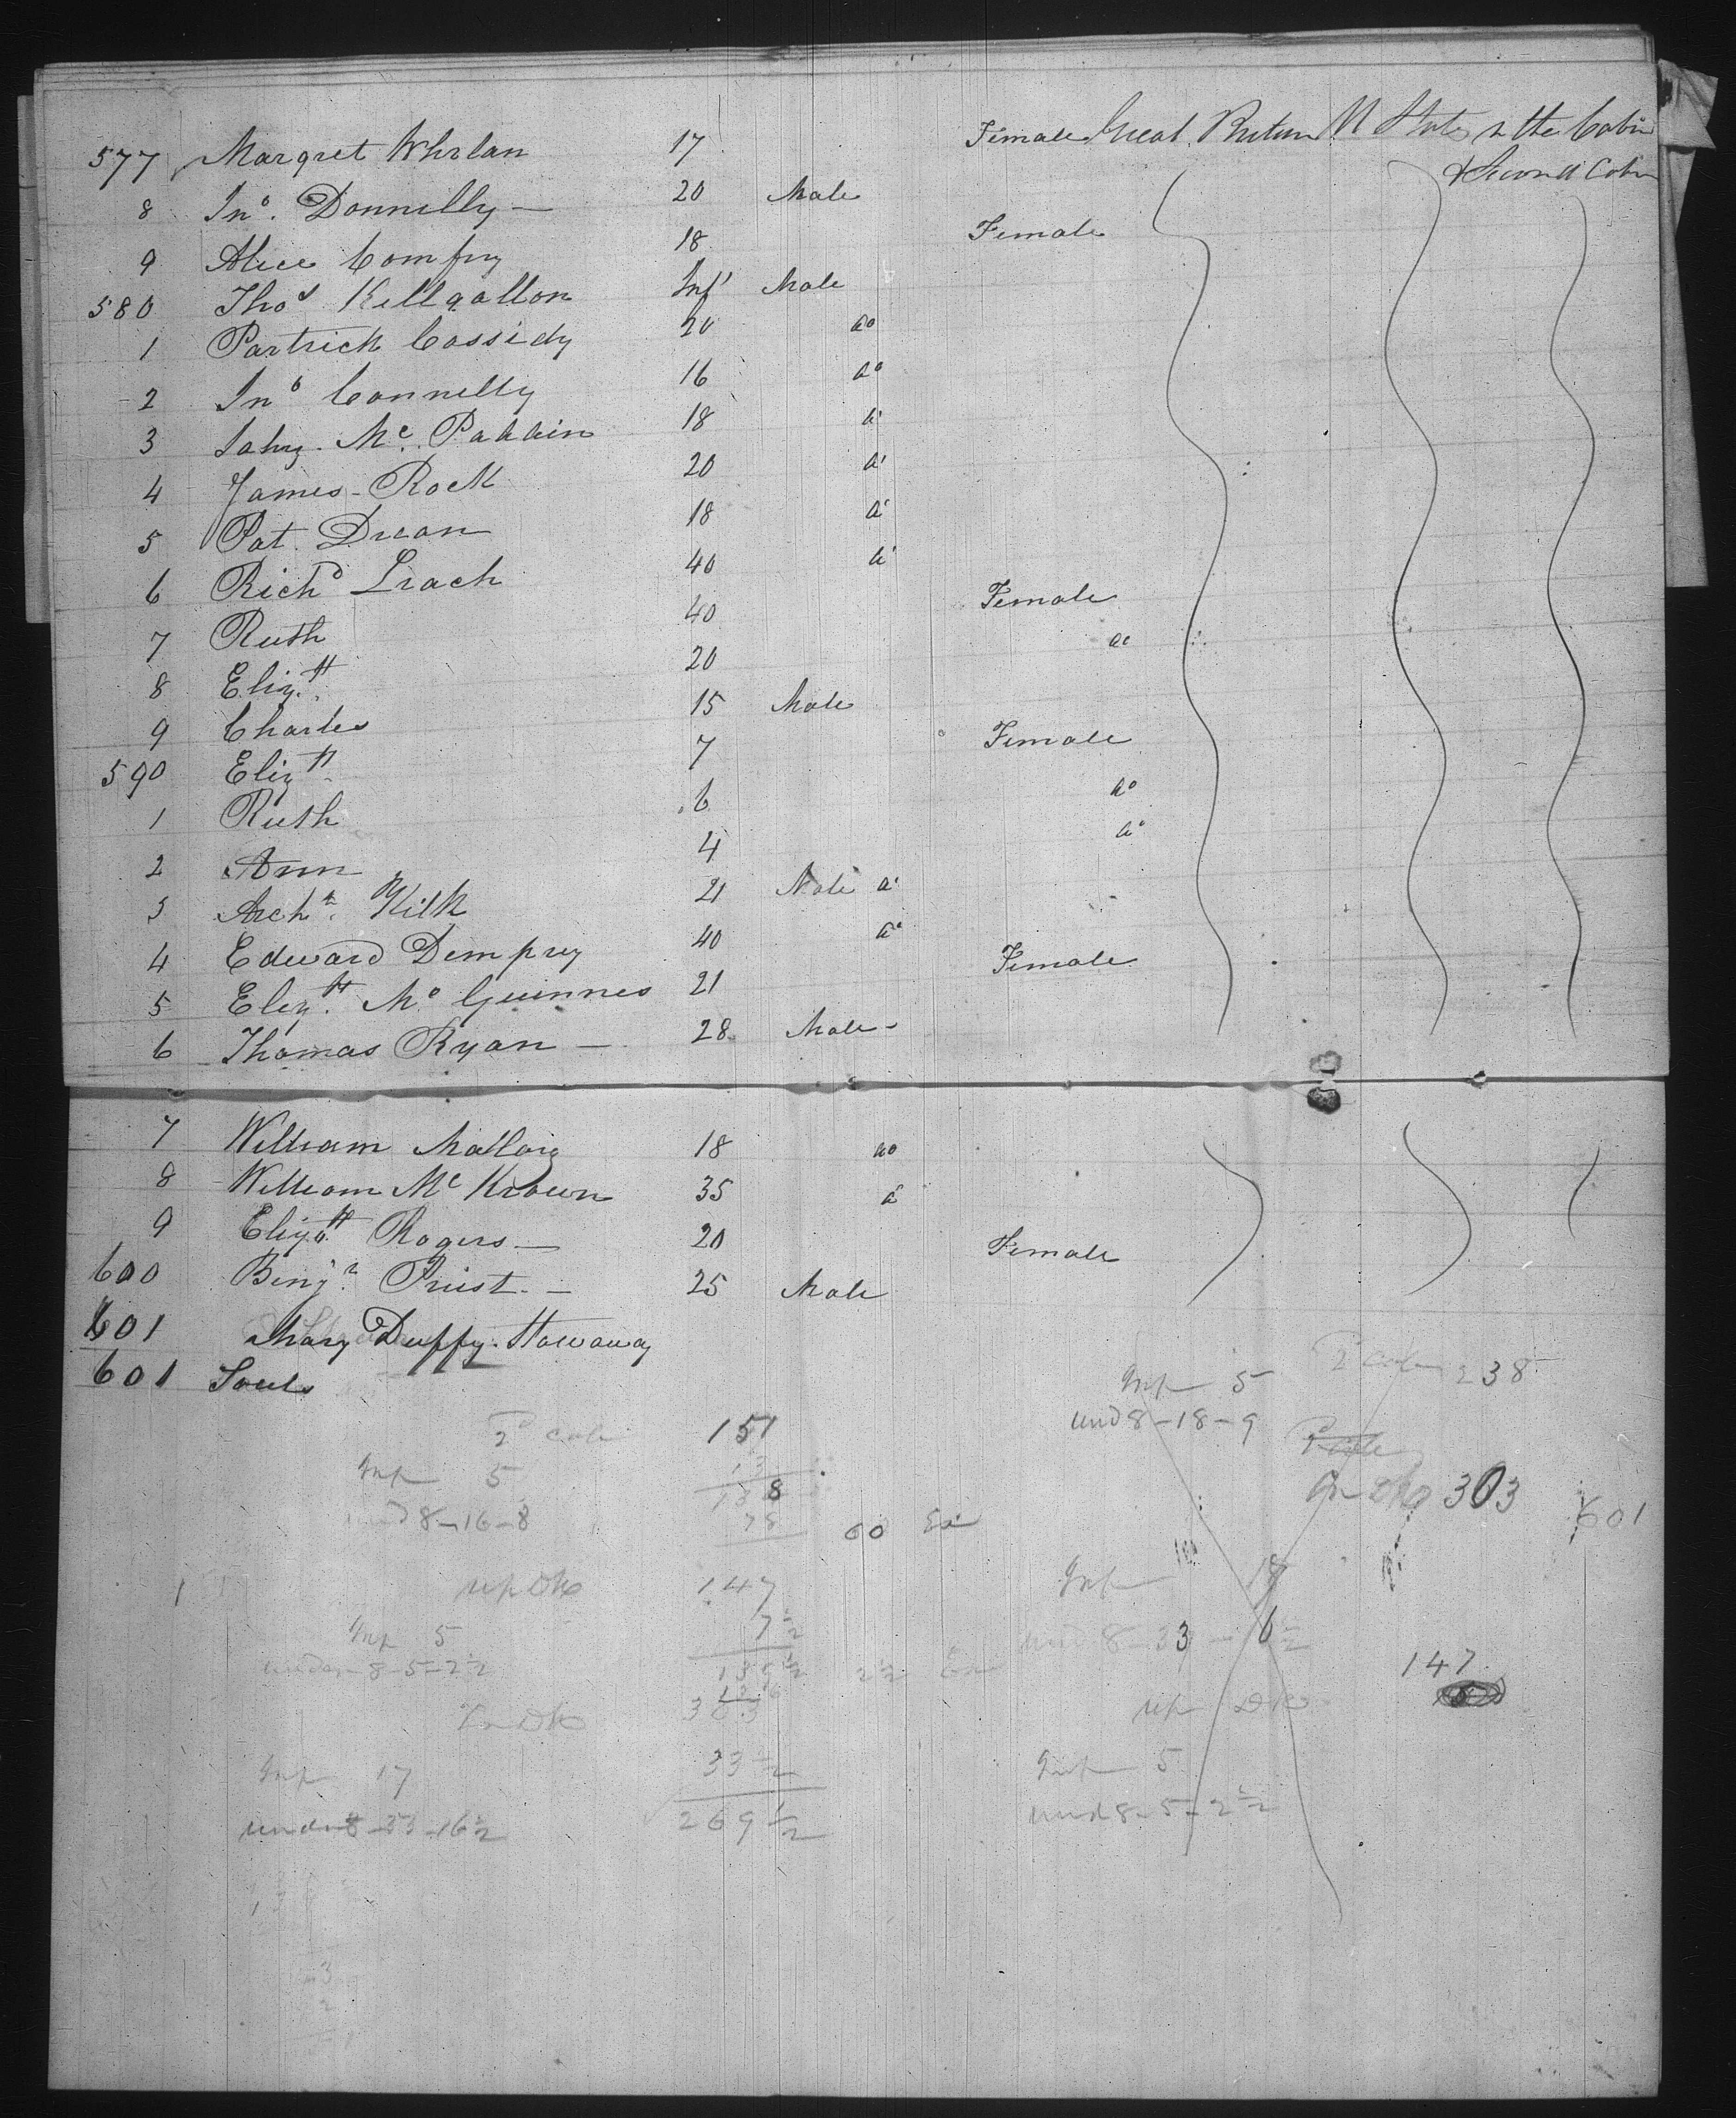 577 Margret Whelan 17 Female Great Britain U States in the Cabin
& Second Cabin
8 Jnº. Donnelly — 20 Male
9 Alice Comfry 18 Female
580 Thoˢ Killgallon Infᵗ Male
1 Partrick Cassidy 20 dº
2 Jnº Connelly 16 dº
3 Mᶜ. Paddin 18 dº
4 James - Rock 20 dº
5 Pat. Duan 18 dº
6 Richᵈ Leach 40 dº
7 Ruth 40 Female
8 Elizᵗʰ. 20 dº
9 Charles 15 Male
590 Elizᵗʰ 7 Female
1 Ruth 6 dº
2 Ann 4 dº
3 Archᵈ. Kilk 21 Male dº
4 Edward Dempsey 40 dº
5 Elizᵗʰ. Mᶜ Guinnes 21 Female
6 Thomas Ryan — 28 Male -
7 William Malloy 18 dº
8 William Mᶜ Keown 35 dº
9 Elizᵗʰ Rogers — 20 Female
600 Benjⁿ. Priest. — 25 Male
601 Mary Duffy. Stowaway
601 Souls
Inf 5 2ᵈ Cab 238
und 8 - 18 - 9
2ᵈ cab 151
Inf 5
8 - 16 - 8
303 601
60
up Dk 147
7 ½
Inf 5
under - 8 - 5 - 2 ½
Inf 18
und 8 - 33 - 6 ½
147
303
up Dk
33 ½
Inf 17
Inf 5
269 ½
under 8 - 33 - 16 ½
und 8 - 5 - 2 ½